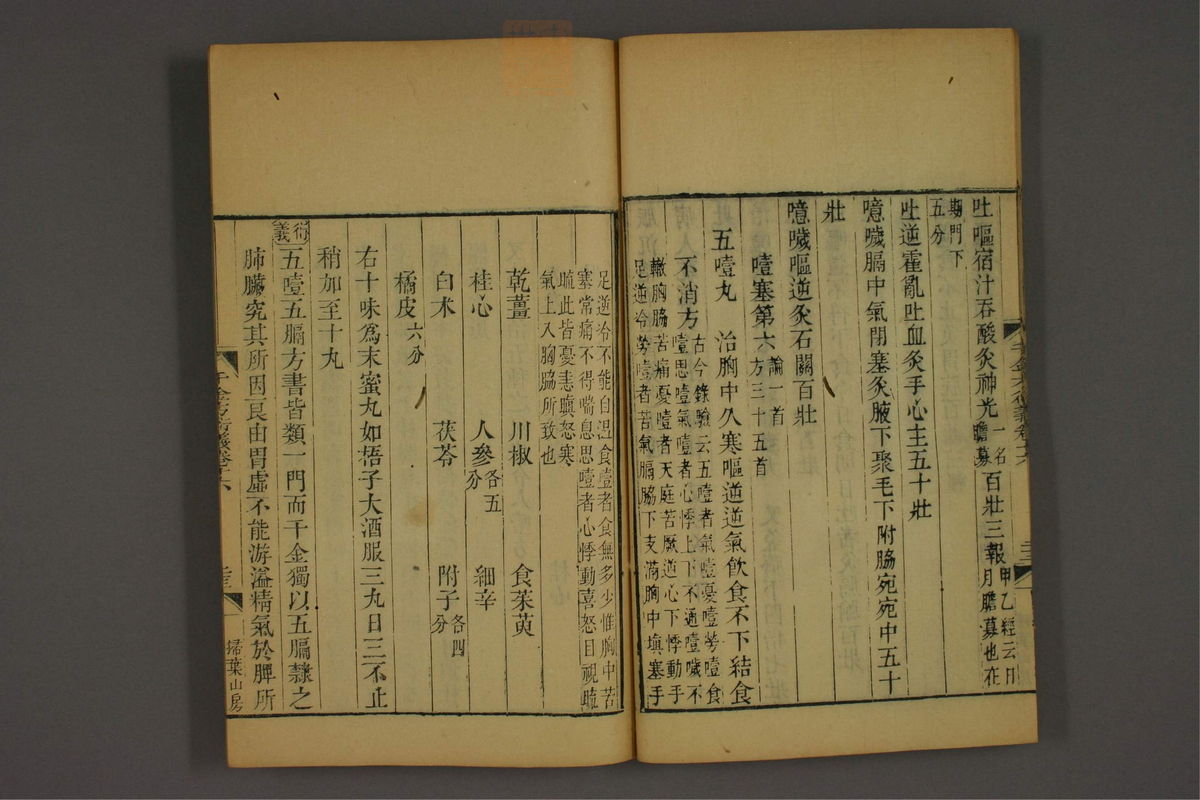 吐嘔宿汁吞酸灸神光一名膽募百壯三報甲乙經云日月膽募也在
期門下
五分
吐逆霍亂吐血灸手心主五十壯
噫噦膈中氣閉塞灸腋下聚毛下附脇宛宛中五十
壯
噫噦嘔逆灸石關百壯
噎塞第六論一首方三十五首
五噎丸 治胸中久寒嘔逆逆氣飲食不下結食
不消方古今錄驗云五噎者氣噎憂噎勞噎食
噎思噎氣噎者心悸上下不通噎噦不
轍胸脇苦痛憂噎者天庭苦厥逆心下悸動手
足逆冷勞噎者苦氣膈脇下支滿胸中填塞手
足逆冷不能自溫食噎者食無多少惟胸中苦
塞常痛不得喘息思噎者心悸動喜怒目視䀮
䀮此皆憂恚嗔怒寒
氣上入胸脇所致也
乾薑 川椒 食茱萸
桂心 人參各五分 細辛
白朮 茯苓 附子各四分
橘皮六分
右十味爲末蜜丸如梧子大酒服三丸日三不止
稍加至十丸
衍義
五噎五膈方書皆類一門而千金獨以五膈隸之
肺臟究其所因良由胃虛不能游溢精氣於脾所
千金方衍義卷十六
掃葉山房